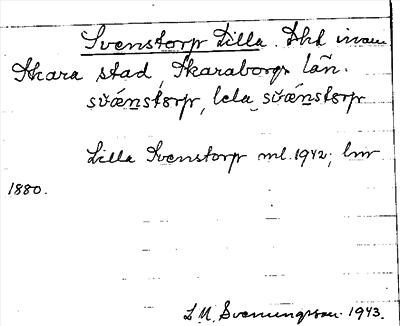 Svenstorp Lilla. Hht inom
Skara stad, Skaraborgs län.
svǽnstɵrp, lela svǽnstɵrp
Lilla Svenstorp ml. 1942; hm
1880.
L. M. Svenungsson 1943.